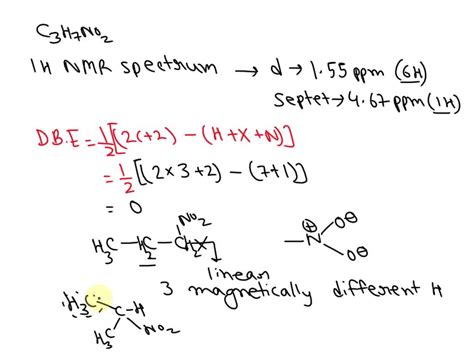 C3H7NO2
1H NMR spectrum → d → 1.55 ppm (6H)
Septet → 4.67 ppm (1H)
D.B.E = 1/2[2C+2) - (H+X+N)]
= 1/2[(2×3+2) - (7+1)]
= 0
NO2
H3C-H2-CH2X
-N⊕ O⊖
O⊖
linear
3 magnetically different H
H3C C-H
H3C NO2